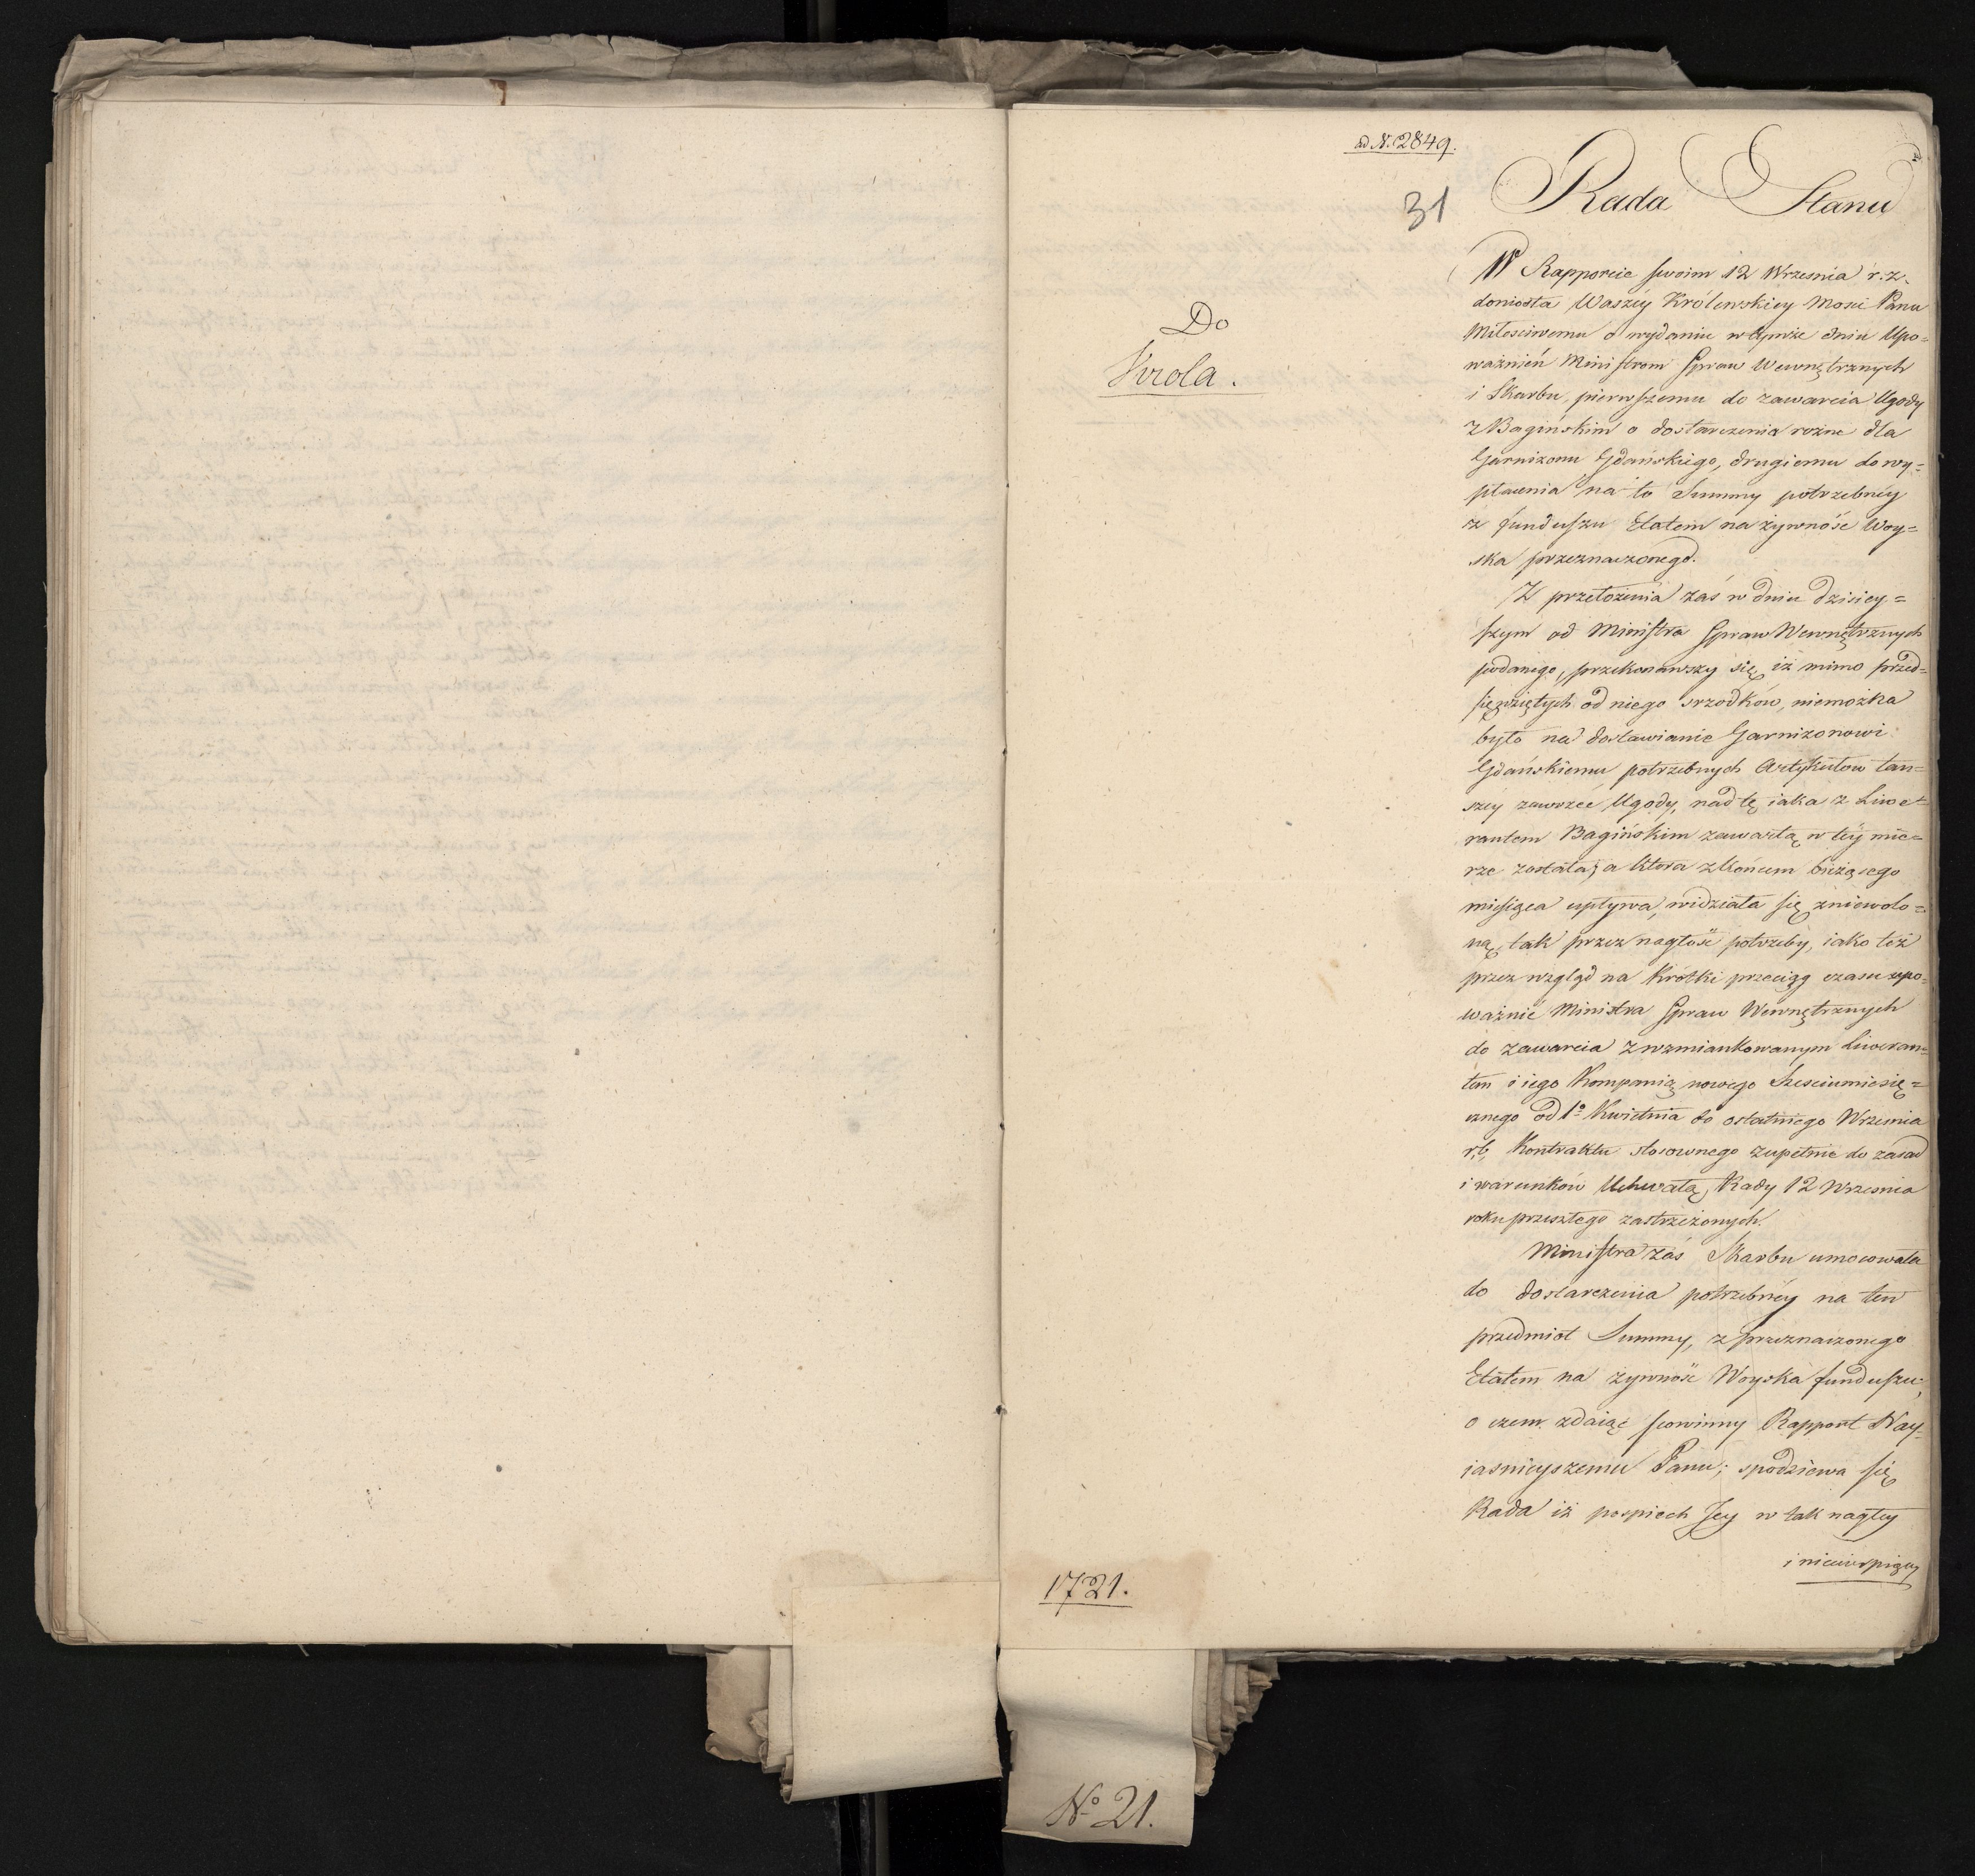 ad N. 2849.
31
Rada Stanu
Do
Krola.
W Rapporcie swoim 12 Września r. z.
doniosła Waszéy Królewskiey Mosci Panu
Miłosciwemu o wydaniu w tymże dniu Upo=
ważnień Ministrom Spraw Wewnętrznych
i Skarbu, pierwszemu do zawarcia Ugody
z Bagińskim o dostarczenia rożne dla
Garnizonu Gdańskiego, drugiemu do wy=
płacenia na to Summy potrzebnéy
z funduszu Etatem na żywność Woy=
ska przeznaczonego.
Z przełożenia zaś w dniu dzisiey=
szym od Ministra Spraw Wewnętrznych
podanego, przekonawszy się, iż mimo przed=
sięwziętych od niego srzodków, niemożna
było na dostawianie Garnizonowi
Gdańskiemu potrzebnych Artykułow tań=
széy zawrzeć Ugody, nad tę iaka z Liwe=
rantem Bagińskim zawartą w téy mie=
rze została, a ktora z końcem bieżącego
miesiąca upływa, widziała się zniewolo=
ną, tak przez nagłość potrzeby, iako też
przez wzgląd na krótki przeciąg czasu upo=
ważnić Ministra Spraw Wewnętrznych
do zawarcia z wzmiankowanym Liweran=
tem i iego Kompanią nowego Szesciomiesię=
cznego od 1o Kwietnia do ostatniego Września
r. b. Kontraktu stosownego zupełnie do zasad
i warunków Uchwałą Rady 12 Wrzesnia
roku przeszłego zastrzeżonych.
Ministra zaś Skarbu umocowała
do dostarczenia potrzebnéy na ten
przedmiot Summy, z przeznaczonego
Etatem na żywność Woyska funduszu;
o czem zdaiąc powinny Rapport Nay=
iasnieyszemu Panu; spodziewa się
Rada iż pospiech Jey w tak nagłey
i niecierpiącey
1721.
No 21.